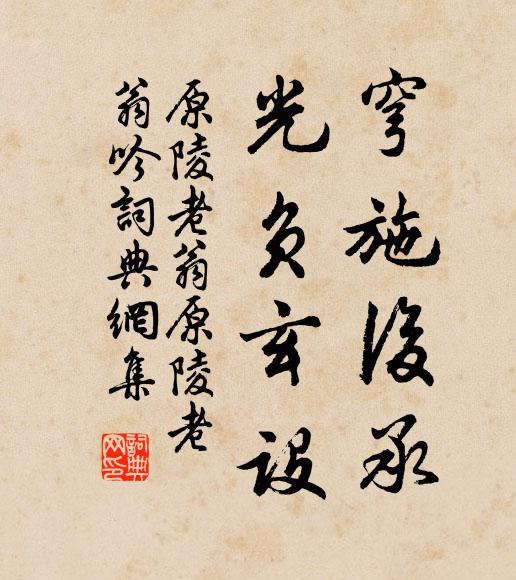 穹施後承
光負玄設
原陵老翁原陵老
翁吟詞典網集
詞典
网印